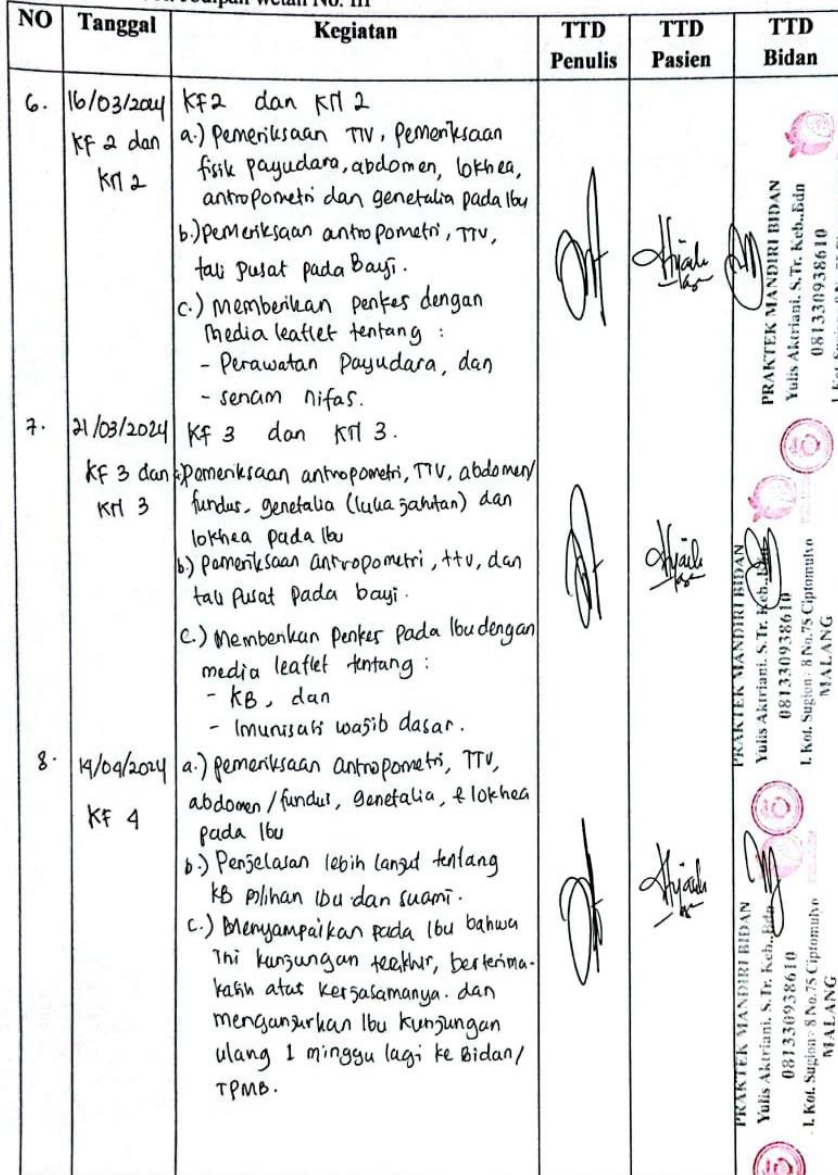 Wetan No. III
NO Tanggal Kegiatan TTD Penulis TTD Pasien TTD Bidan
6. 16/03/2024 KF2 dan KN 2
KF 2 dan KN 2
a.) Pemeriksaan TTV, Pemeriksaan
fisik payudara, abdomen, lokhea,
antropometri dan genetalia pada Ibu
b.) Pemeriksaan antropometri, TTV,
tali pusat pada Bayi.
c.) Memberikan penkes dengan
media leaflet tentang :
- Perawatan Payudara, dan
- senam nifas.
PRAKTEK MANDIRI BIDAN
Yulis Aktriani. S.Tr. Keb.,Bdn
081330938610
7. 21/03/2024 KF 3 dan KN 3.
KF 3 dan KN 3
Pemeriksaan antropometri, TTV, abdomen/
fundus, genetalia (luka jahitan) dan
lokhea pada Ibu
b.) Pemeriksaan antropometri, ttv, dan
tali pusat pada bayi.
C.) Memberikan Penkes Pada Ibu dengan
media leaflet tentang :
- KB, dan
- Imunisasi wajib dasar.
PRAKTEK MANDIRI BIDAN
Yulis Aktriani. S.Tr. Keb.,Bdn
081330938610
No.75 Ciptomulyo
MALANG
8. 14/04/2024 a.) Pemeriksaan antropometri, TTV,
KF 4
abdomen/fundus, genetalia, & lokhea
pada Ibu
b.) Penjelasan lebih lanjut tentang
KB pilihan ibu dan suami.
C.) Menyampaikan pada Ibu bahwa
ini kunjungan terakhir, berterima-
kasih atas kerjasamanya. dan
menganjurkan Ibu kunjungan
ulang 1 minggu lagi ke Bidan/
TPMB.
PRAKTEK MANDIRI BIDAN
Yulis Aktriani. S.Tr. Keb.,Bdn
081330938610
No.75 Ciptomulyo
MALANG